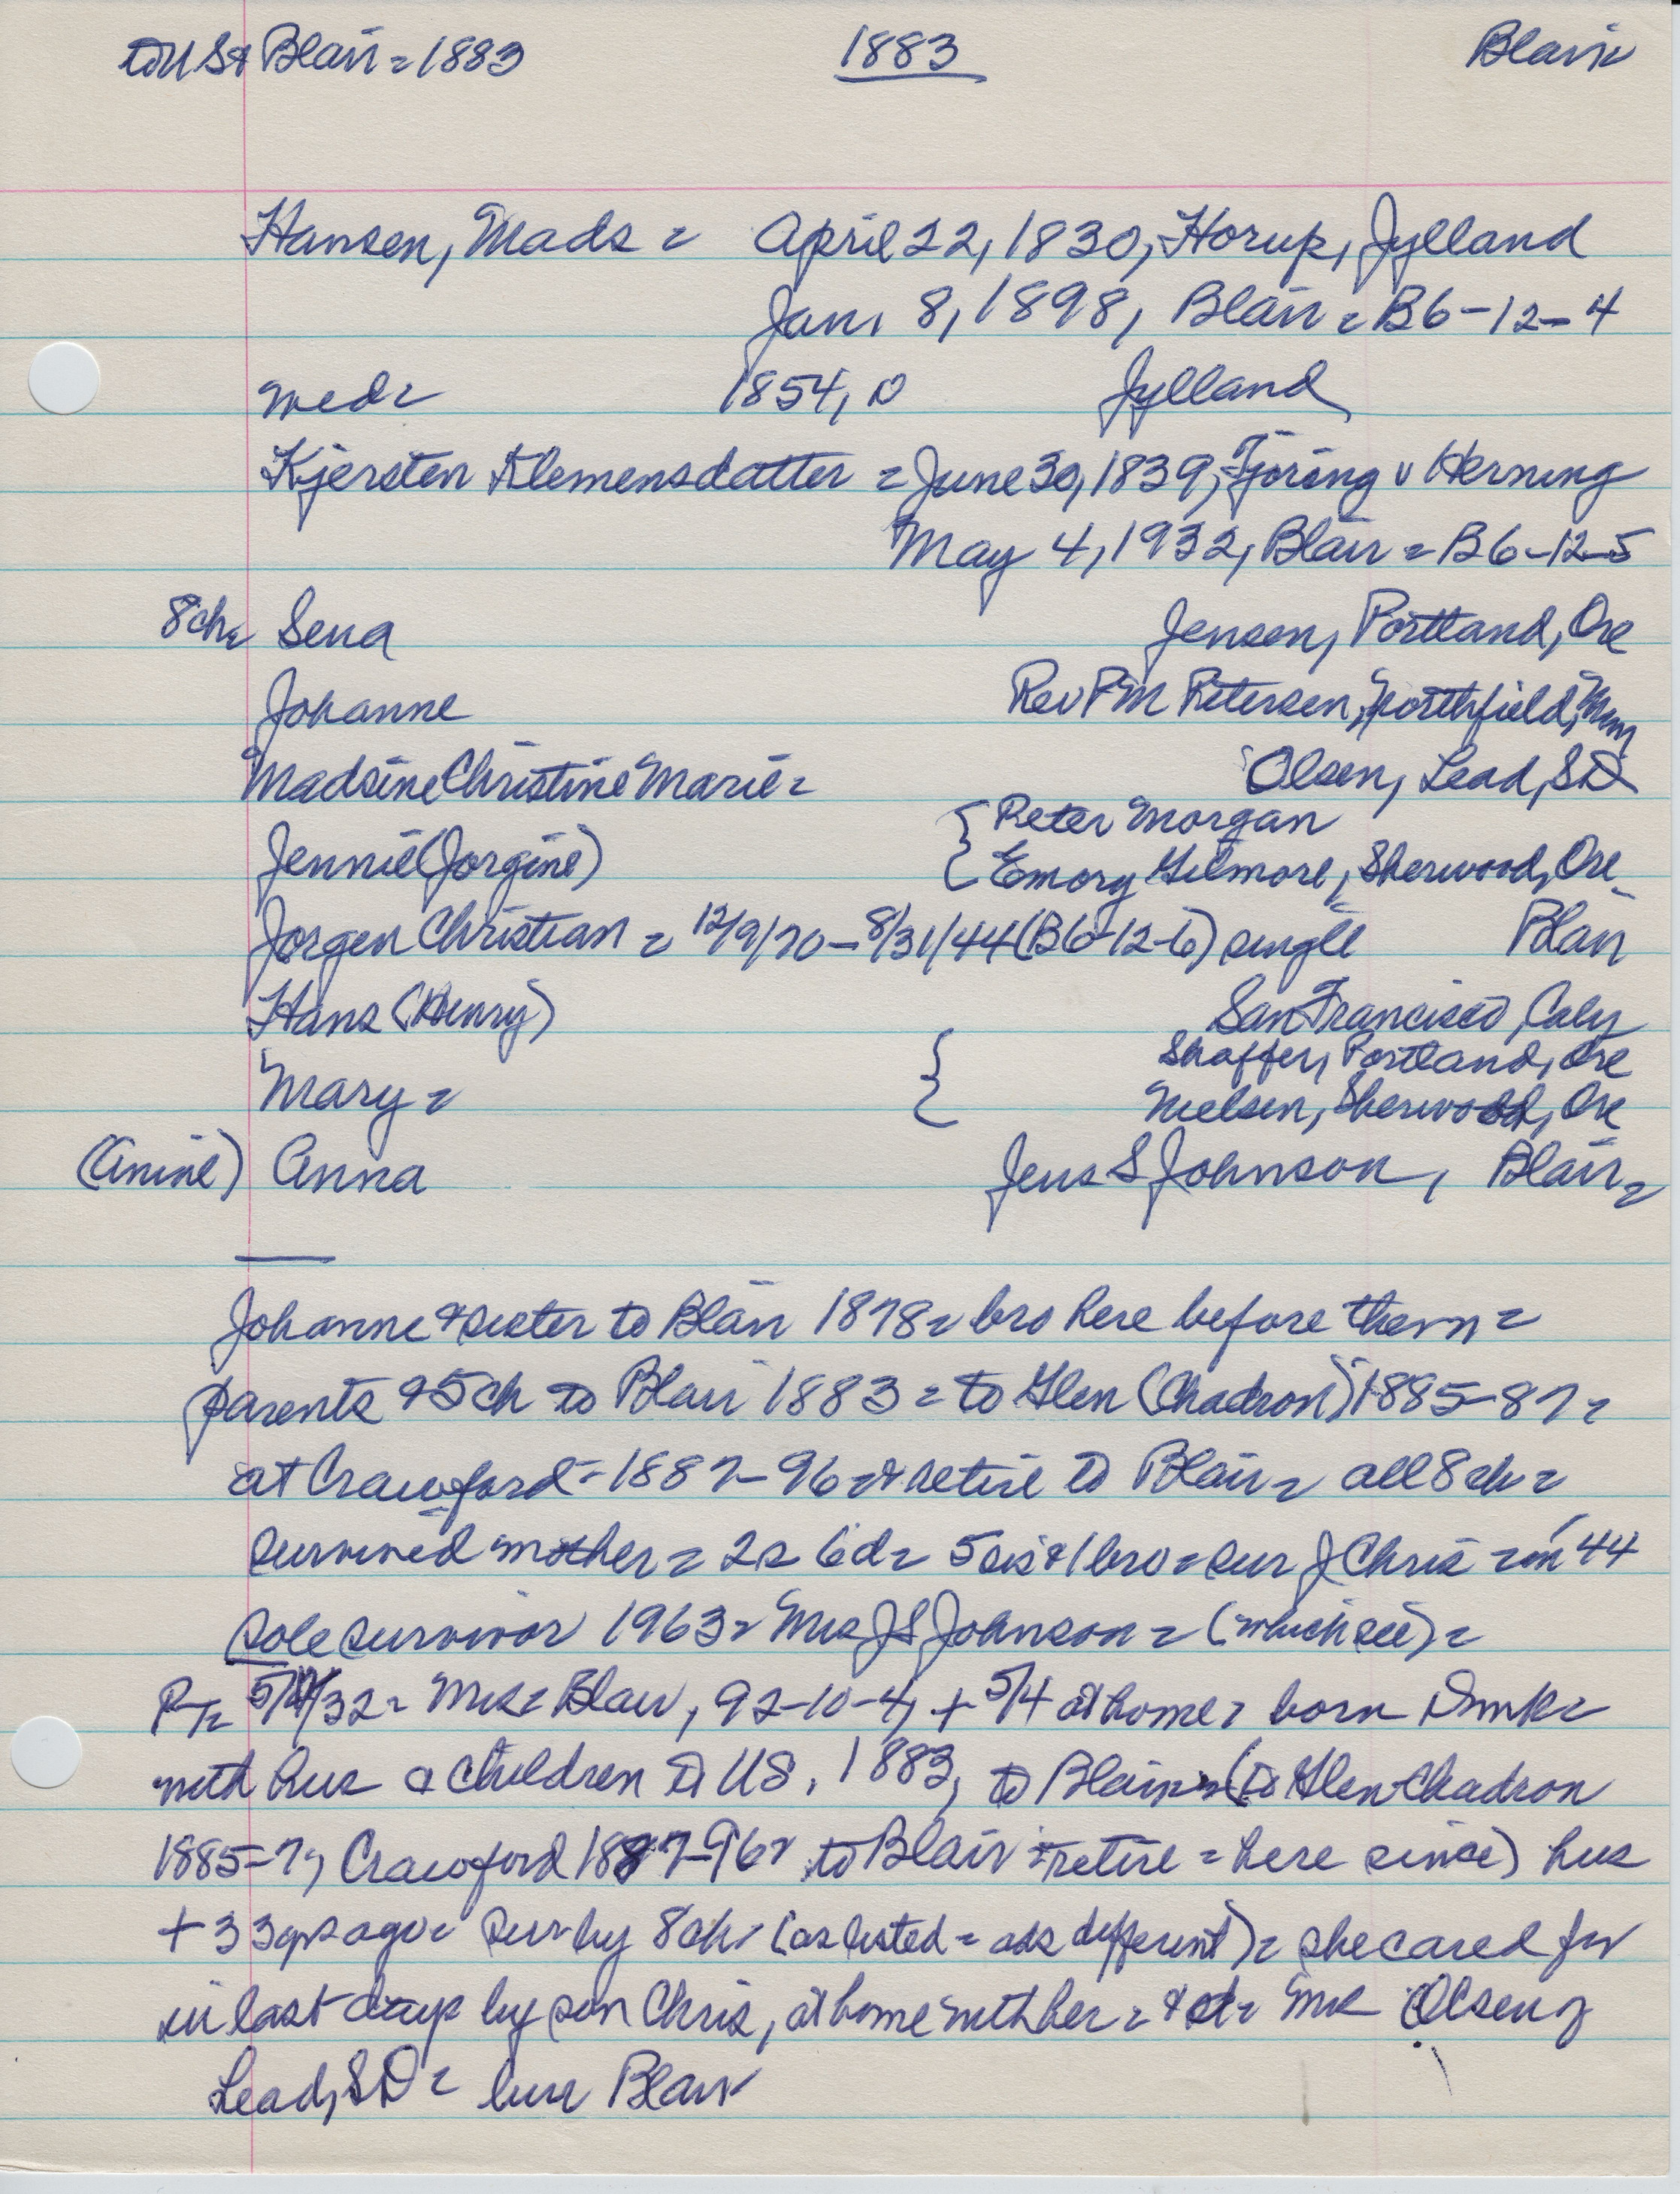 to US & Blair = 1883 1883 Blair
Hansen, Mads = April 22, 1830, Horup, Jylland
Jan. 8, 1898, Blair = B6-12-4
med = 1854, D Jylland
Kjersten Klemensdatter = June 30, 1839, Tjöring v Herning
May 4, 1932, Blair = B6-12-5
8 ch = Sena Jensen, Portland, Ore
Johanne Rev P M Petersen, Northfield, Minn
Madsine Christine Marie = Olsen, Lead, SD
{ Peter Morgan
Jennie (Jorgine) Emory Gilmore, Sherwood, Ore
Jorgen Christian = 12/9/70 - 8/31/44 (B6-12-6) single Blair
Hans (Henry) San Francisco, Calif
{ Shaffer, Portland, Ore
Mary = Nielsen, Sherwood, Ore
(Anine) Anna Jens S Johnson, Blair =
Johanne & sister to Blair 1878 = bro here before them =
parents & 5 ch to Blair 1883 = to Glen (Chadron) 1885-87 =
at Crawford = 1887-96 = & retire to Blair = all 8 ch =
survived mother = 2 s 6 d = 5 sis & 1 bro = sur J Chris = in '44
sole survivor 1963 = Mrs J S Johnson = (which see) =
PT = 32 = Mrs = Blair, 92-10-4, + 5/4 at home = born Dmk =
with hus & children to US, 1883, to Blair = (to Glen Chadron
1885-7, Crawford 1887-96 = to Blair = retire = here since) hus
+ 33 yrs ago = sur by 8 ch = (as listed = ads different) = she cared for
in last days by son Chris, at home with her = & = Mrs Olsen,
Lead, SD = bur Blair